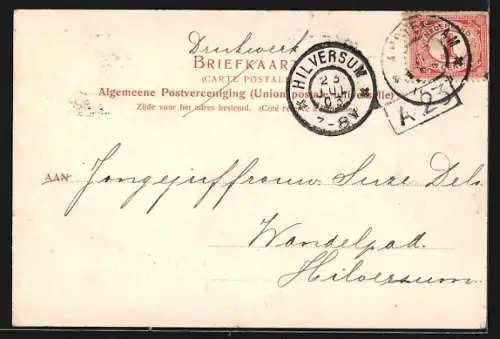 Drukwerk
BRIEFKAART
(CARTE POSTALE)
Algemeene Postvereeniging (Union postale universelle)
Zijde voor het adres bestemd. (Côté réservé à l'adresse)
NEDERLAND
1 CENT
AMSTERDAM
HILVERSUM
23
JUL
03
7-8V
A 23
AAN Jongejuffrouw Suze Dels
Wandelpad.
Hilversum.